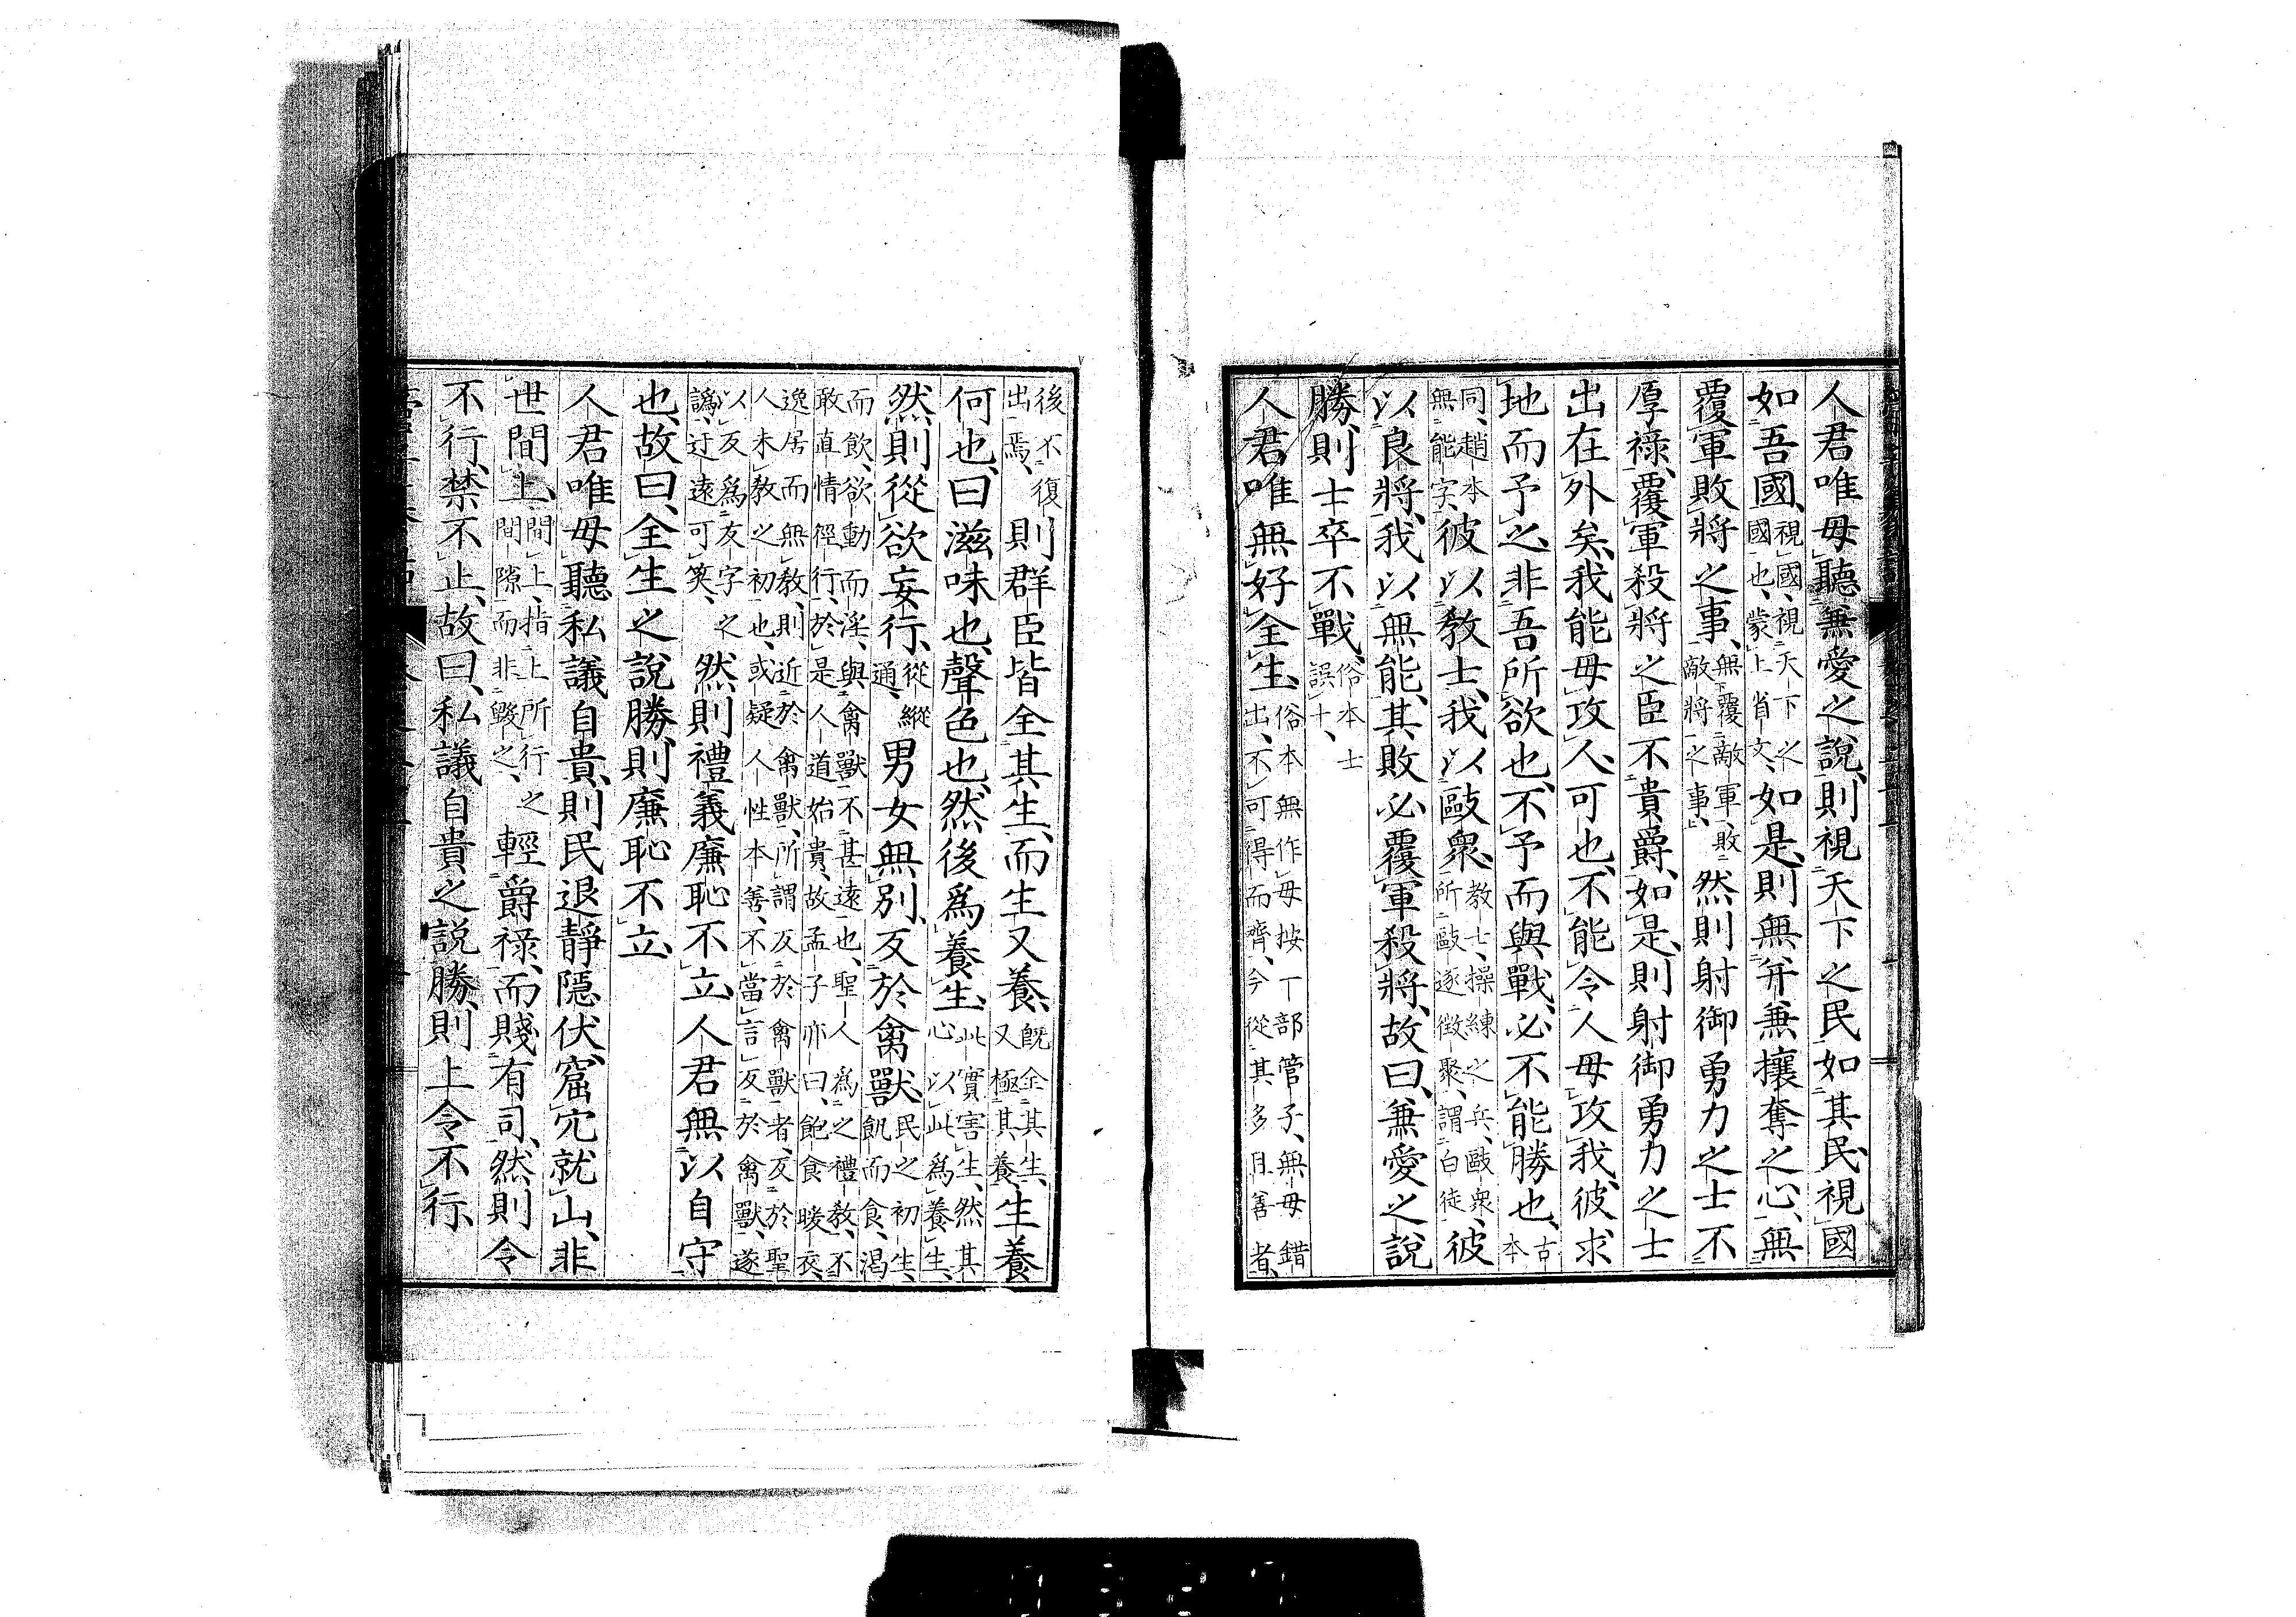 人君唯毋聽兼愛之說、則視天下之民如其民、視國
如吾國、視國、視天下之國也、蒙上省文、如是、則無并兼攘奪之心、無
覆軍敗將之事、無覆敵軍、敗敵將之事、然則射御勇力之士不
厚祿、覆軍殺將之臣不貴爵、如是、則射御勇力之士
出在外矣、我能毋攻人、可也、不能令人毋攻我、彼求
地而予之、非吾所欲也、不予而與戰、必不能勝也、古本
同、趙本無能字、彼以教士、我以敺眾、教士、操練之兵、敺眾、所敺逐徵聚、謂白徒、彼
以良將、我以無能、其敗必覆軍殺將、故曰、兼愛之說
勝、則士卒不戰、俗本士誤十、
人君唯無好全生、俗本無作毋按丁部管子、無毋錯出、不可得而齊、今從其多且善者、
則群臣皆全其生、而生又養、既全其生、又極其養、生養
何也、曰滋味也、聲色也、然後爲養生、此實害生、然其心以此爲養生、
然則從欲妄行、從縱通、男女無別、反於禽獸、民之初生、飢而食、渴
而飲、欲動而淫、與禽獸不甚遠也、聖人爲之禮教、不
敢直情徑行、於是人道始貴、故孟子亦曰、飽食暖衣、
逸居而無教、則近於禽獸、所謂反於禽獸者、反於聖
人未教之初也、或疑人性本善、不當言反於禽獸、遂
以反爲友字之譌、迂遠可笑、然則禮義廉恥不立、人君無以自守
也、故曰、全生之說勝、則廉恥不立、
人君唯毋聽私議自貴、則民退靜隱伏、窟穴就山、非
世間上、間上、指上所行之間隙而非毀之、輕爵祿、而賤有司、然則令
不行、禁不止、故曰、私議自貴之說勝、則上令不行、